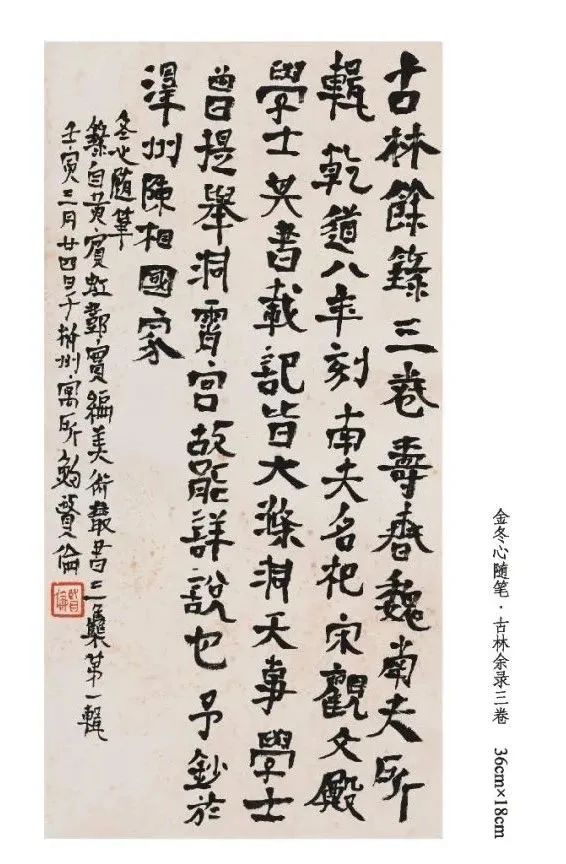 古林餘錄三卷壽春魏南夫所
輯乾道八年刻南夫名杞宋觀文殿
學士其書載記皆大滌洞天事學士
曾提舉洞霄宮故能詳說也予鈔於
澤州陳相國家
冬心随筆
錄自黃賓虹鄧實編美術叢書三集第一輯
壬寅三月廿四日于杭州寓所曾賢倫
金冬心随笔·古林余录三卷 36cm×18cm